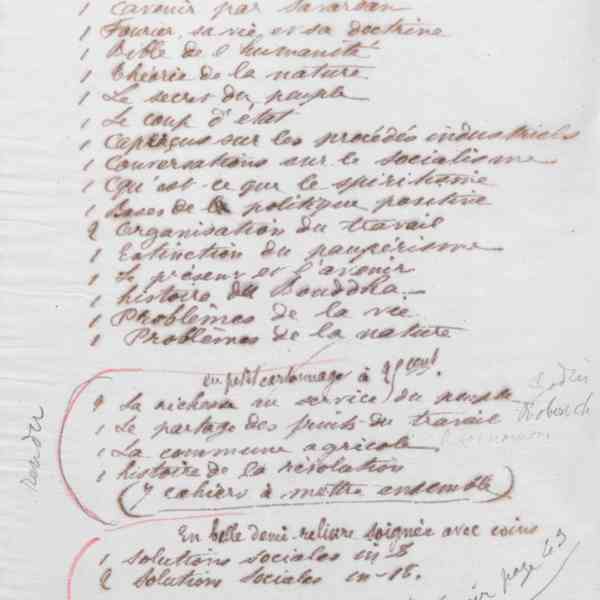 1 L'avenir par Savardan
1 Fourier, sa vie, et sa doctrine
1 Bible de l'humanité
1 théorie de la nature
1 Le secret du peuple
1 Le coup d'état
1 aperçus sur les procédés industriels
1 Conversations sur le socialisme
1 Qu'est-ce que le spiritisme
1 Bases de la politique positive
2 Organisation du travail
1 Extinction du paupérisme
1 Le présent et l'avenir
1 histoire du Bouddha
1 Problèmes de la vie
1 Problèmes de la nature
en petit cartonnage à
La richesse au service du peuple
1 Le partage des fruits du travail
1 La commune agricole
1 histoire de la résolution
(7 cahiers à mettre ensemble)
En belle demi-reliure soignée avec coins
1 Solutions sociales in 8
2 Solutions Sociales in-18.
page 43